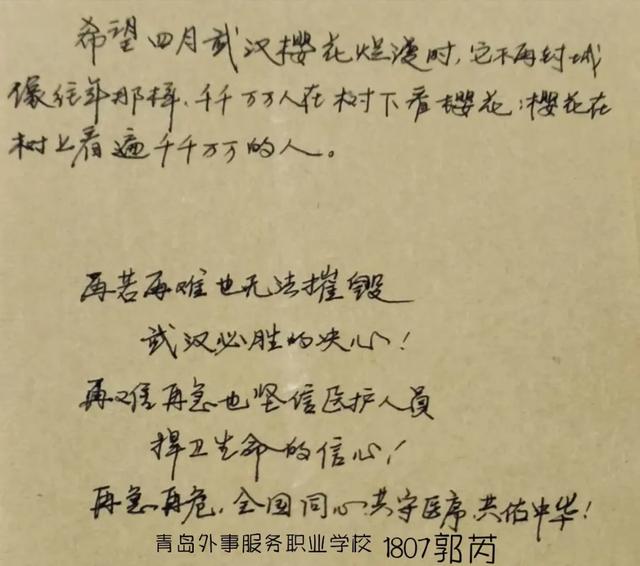 希望四月武汉樱花烂漫时,它不再封城
像往年那样,千千万万人在树下看樱花;樱花在
树上看遍千千万万的人。
再苦再难也无法摧毁
武汉必胜的决心!
再难再急也坚信医护人员
捍卫生命的信心!
再急再危,全国同心,共守医序,共佑中华!
青岛外事服务职业学校 1807郭芮